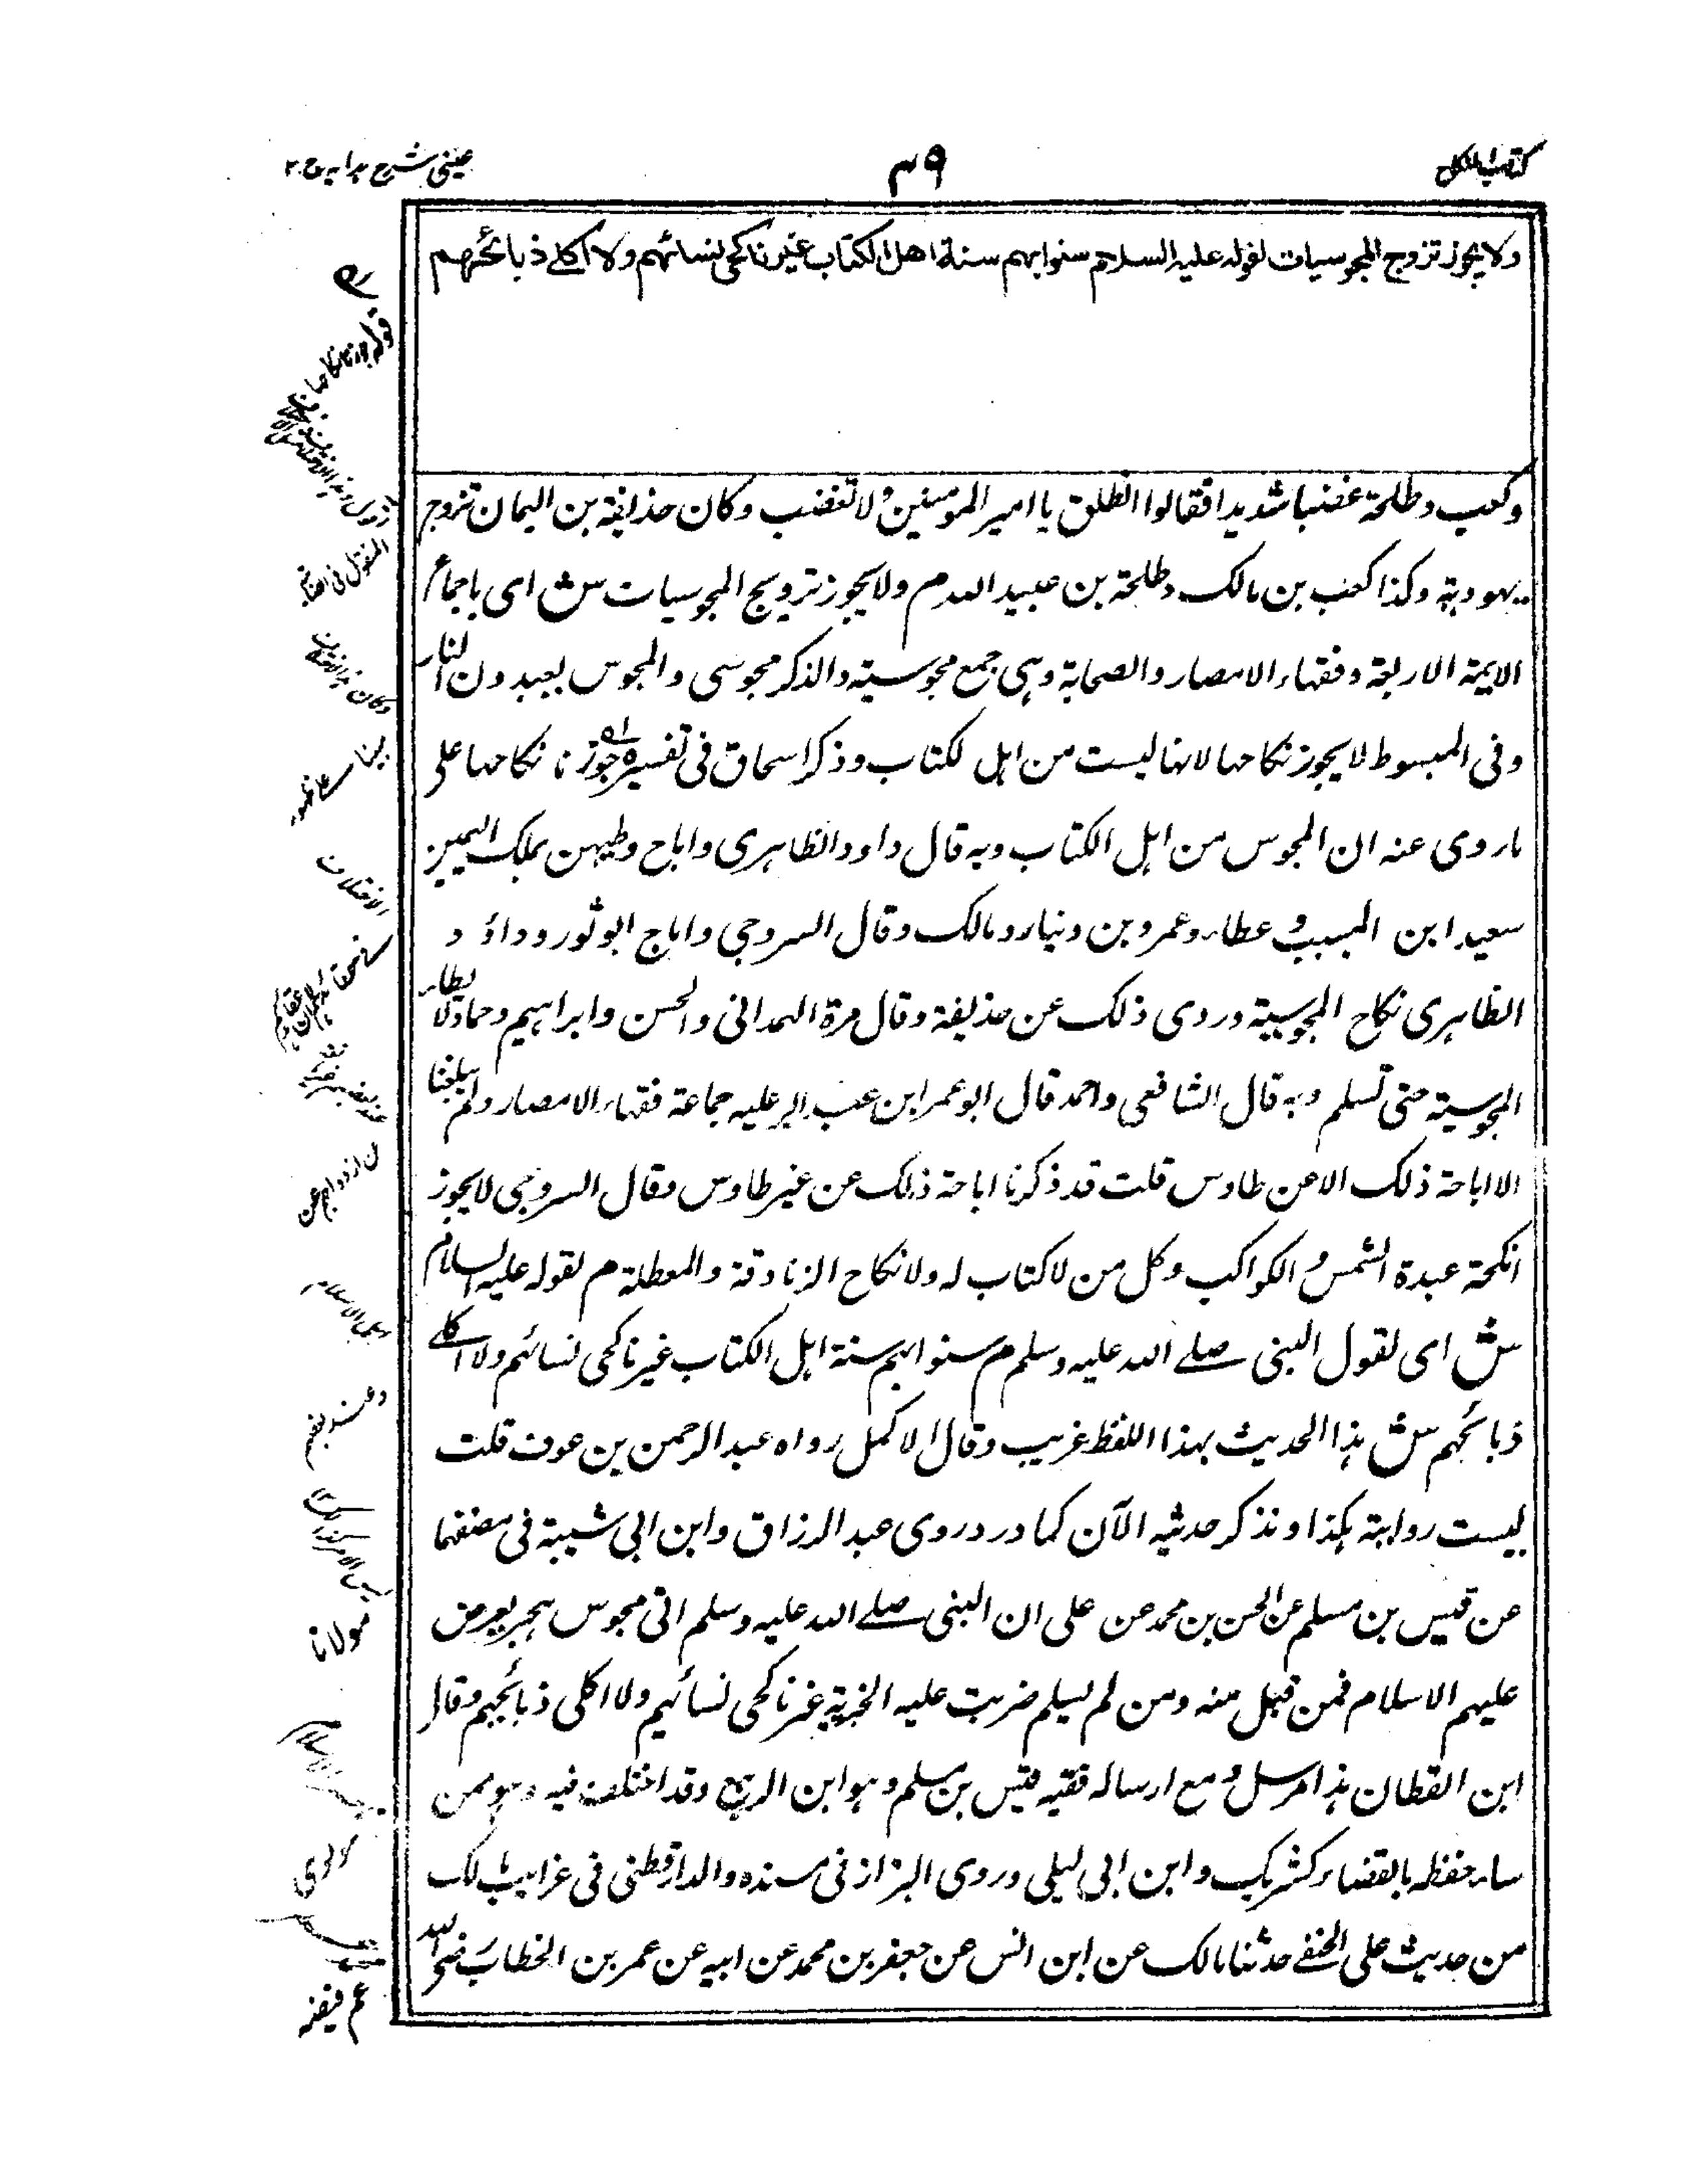 كتاب النكاح
٤٩
عينى شرح هدايه ج ٢
ولا يجوز تزوج المجوسيات لقوله عليه السلام سنوا بهم سنة اهل الكتاب غير ناكحى نسائهم ولا اكلى ذبائحهم
وكعب وطلحة غضبا شديدا فقالوا انطلق يا امير المومنين ولا تغضب وكان حذيفة بن اليمان تزوج
يهودية وكذا كعب بن مالك وطلحة بن عبيد الله م ولا يجوز تزويج المجوسيات ش اى باجماع
الايمة الاربعة وفقهاء الامصار والصحابة وهى جمع مجوسية والذكر مجوسى والمجوس يعبدون النار
وفى المبسوط لا يجوز نكاحها لانها ليست من اهل لكتاب وذكر اسحاق فى تفسيره جوزنا نكاحها على
ما روى عنه ان المجوس من اهل الكتاب وبه قال داود الظاهرى واباح وطيهن بملك اليمين
سعيد ابن المسيب و عطاء وعمرو بن دينار ومالك وقال السروجى واباح ابو ثور وداؤد
الظاهرى نكاح المجوسية وروى ذلك عن حذيفة وقال مرة الهمدانى والحسن وابراهيم وحماد لا يطاء
المجوسية حتى تسلم وبه قال الشافعى واحمد قال ابو عمر ابن عبد البر عليه جماعة فقهاء الامصار ولم يبلغنا
الا اباحة ذلك الا عن طاوس قلت قد ذكرنا اباحة ذلك عن غير طاوس وقال السروجى لا يجوز
انكحة عبدة الشمس و الكواكب وكل من لا كتاب له ولا نكاح الزنادقة والمعطلة م لقوله عليه السلام
ش اى لقول النبى صلے الله عليه وسلم م سنوا بهم سنة اهل الكتاب غير ناكحى نسائهم ولا اكلے
ذبائحهم ش هذا الحديث بهذا اللفظ غريب وقال الاكمل رواه عبد الرحمن بن عوف قلت
ليست روايته هكذا ونذكر حديثه الآن كما ورد روى عبد الرزاق وابن ابى شيبة فى مصنفهما
عن قيس بن مسلم عن الحسن بن محمد عن على ان النبى صلے الله عليه وسلم اتى مجوس هجر يعرض
عليهم الاسلام فمن قبل منه ومن لم يسلم ضربت عليه الجزية غير ناكحى نسائهم ولا اكلى ذبائحهم وقال
ابن القطان هذا مرسل و مع ارساله فقيه قيس بن مسلم وهو ابن الربيع وقد اختلف فيه وهو ممن
ساء حفظه بالقضاء كشريك وابن ابى ليلى وروى البزاز فى مسنده والدارقطنى فى غرايب مالك
من حديث على الحنفے حدثنا مالك عن ابن انس عن جعفر بن محمد عن ابيه عن عمر بن الخطاب رضى الله
الاختلاف
مولانا
عم فيضه